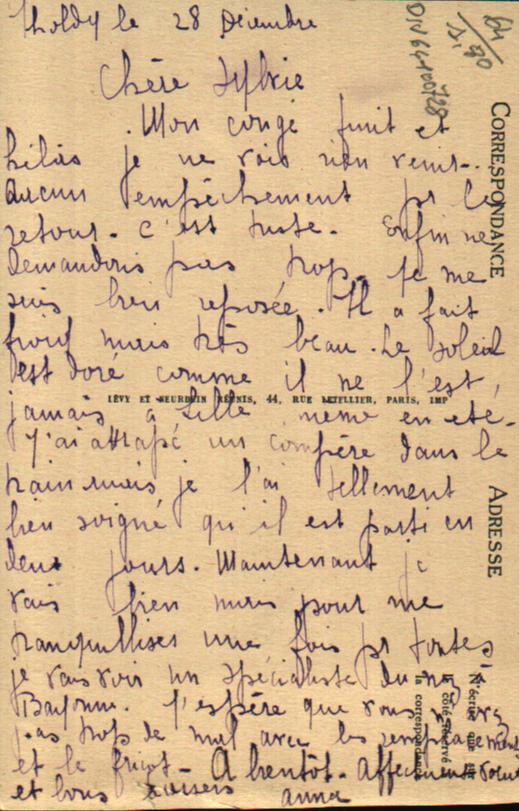 le 28 Décembre
Chère Sylvie
Mon congé finit et
hélas je ne vois rien venir..
aucun empêchement pr le
retour. C'est triste. Enfin ne
demandons pas trop. Je me
suis bien reposée. Il a fait
froid mais très beau. Le soleil
est doré comme il ne l'est
jamais à Lille même en été.
J'ai attrapé un compère dans le
train mais je l'ai tellement
bien soigné qu'il est parti en
deux jours. Maintenant je
vais bien mais pour me
tranquilliser une fois pr toutes
je vais voir un spécialiste du nez à
Bayonne. J'espère que vous n'avez
pas trop de mal avec les remplacements
et le fricot. A bientôt. Affectueusement
et bons baisers anna
D N 64100728
64
CORRESPONDANCE
ADRESSE
LÉVY ET NEURDEIN RÉUNIS, 44, RUE LETELLIER, PARIS, IMP
N'écrire que
côté réservé
la correspondance